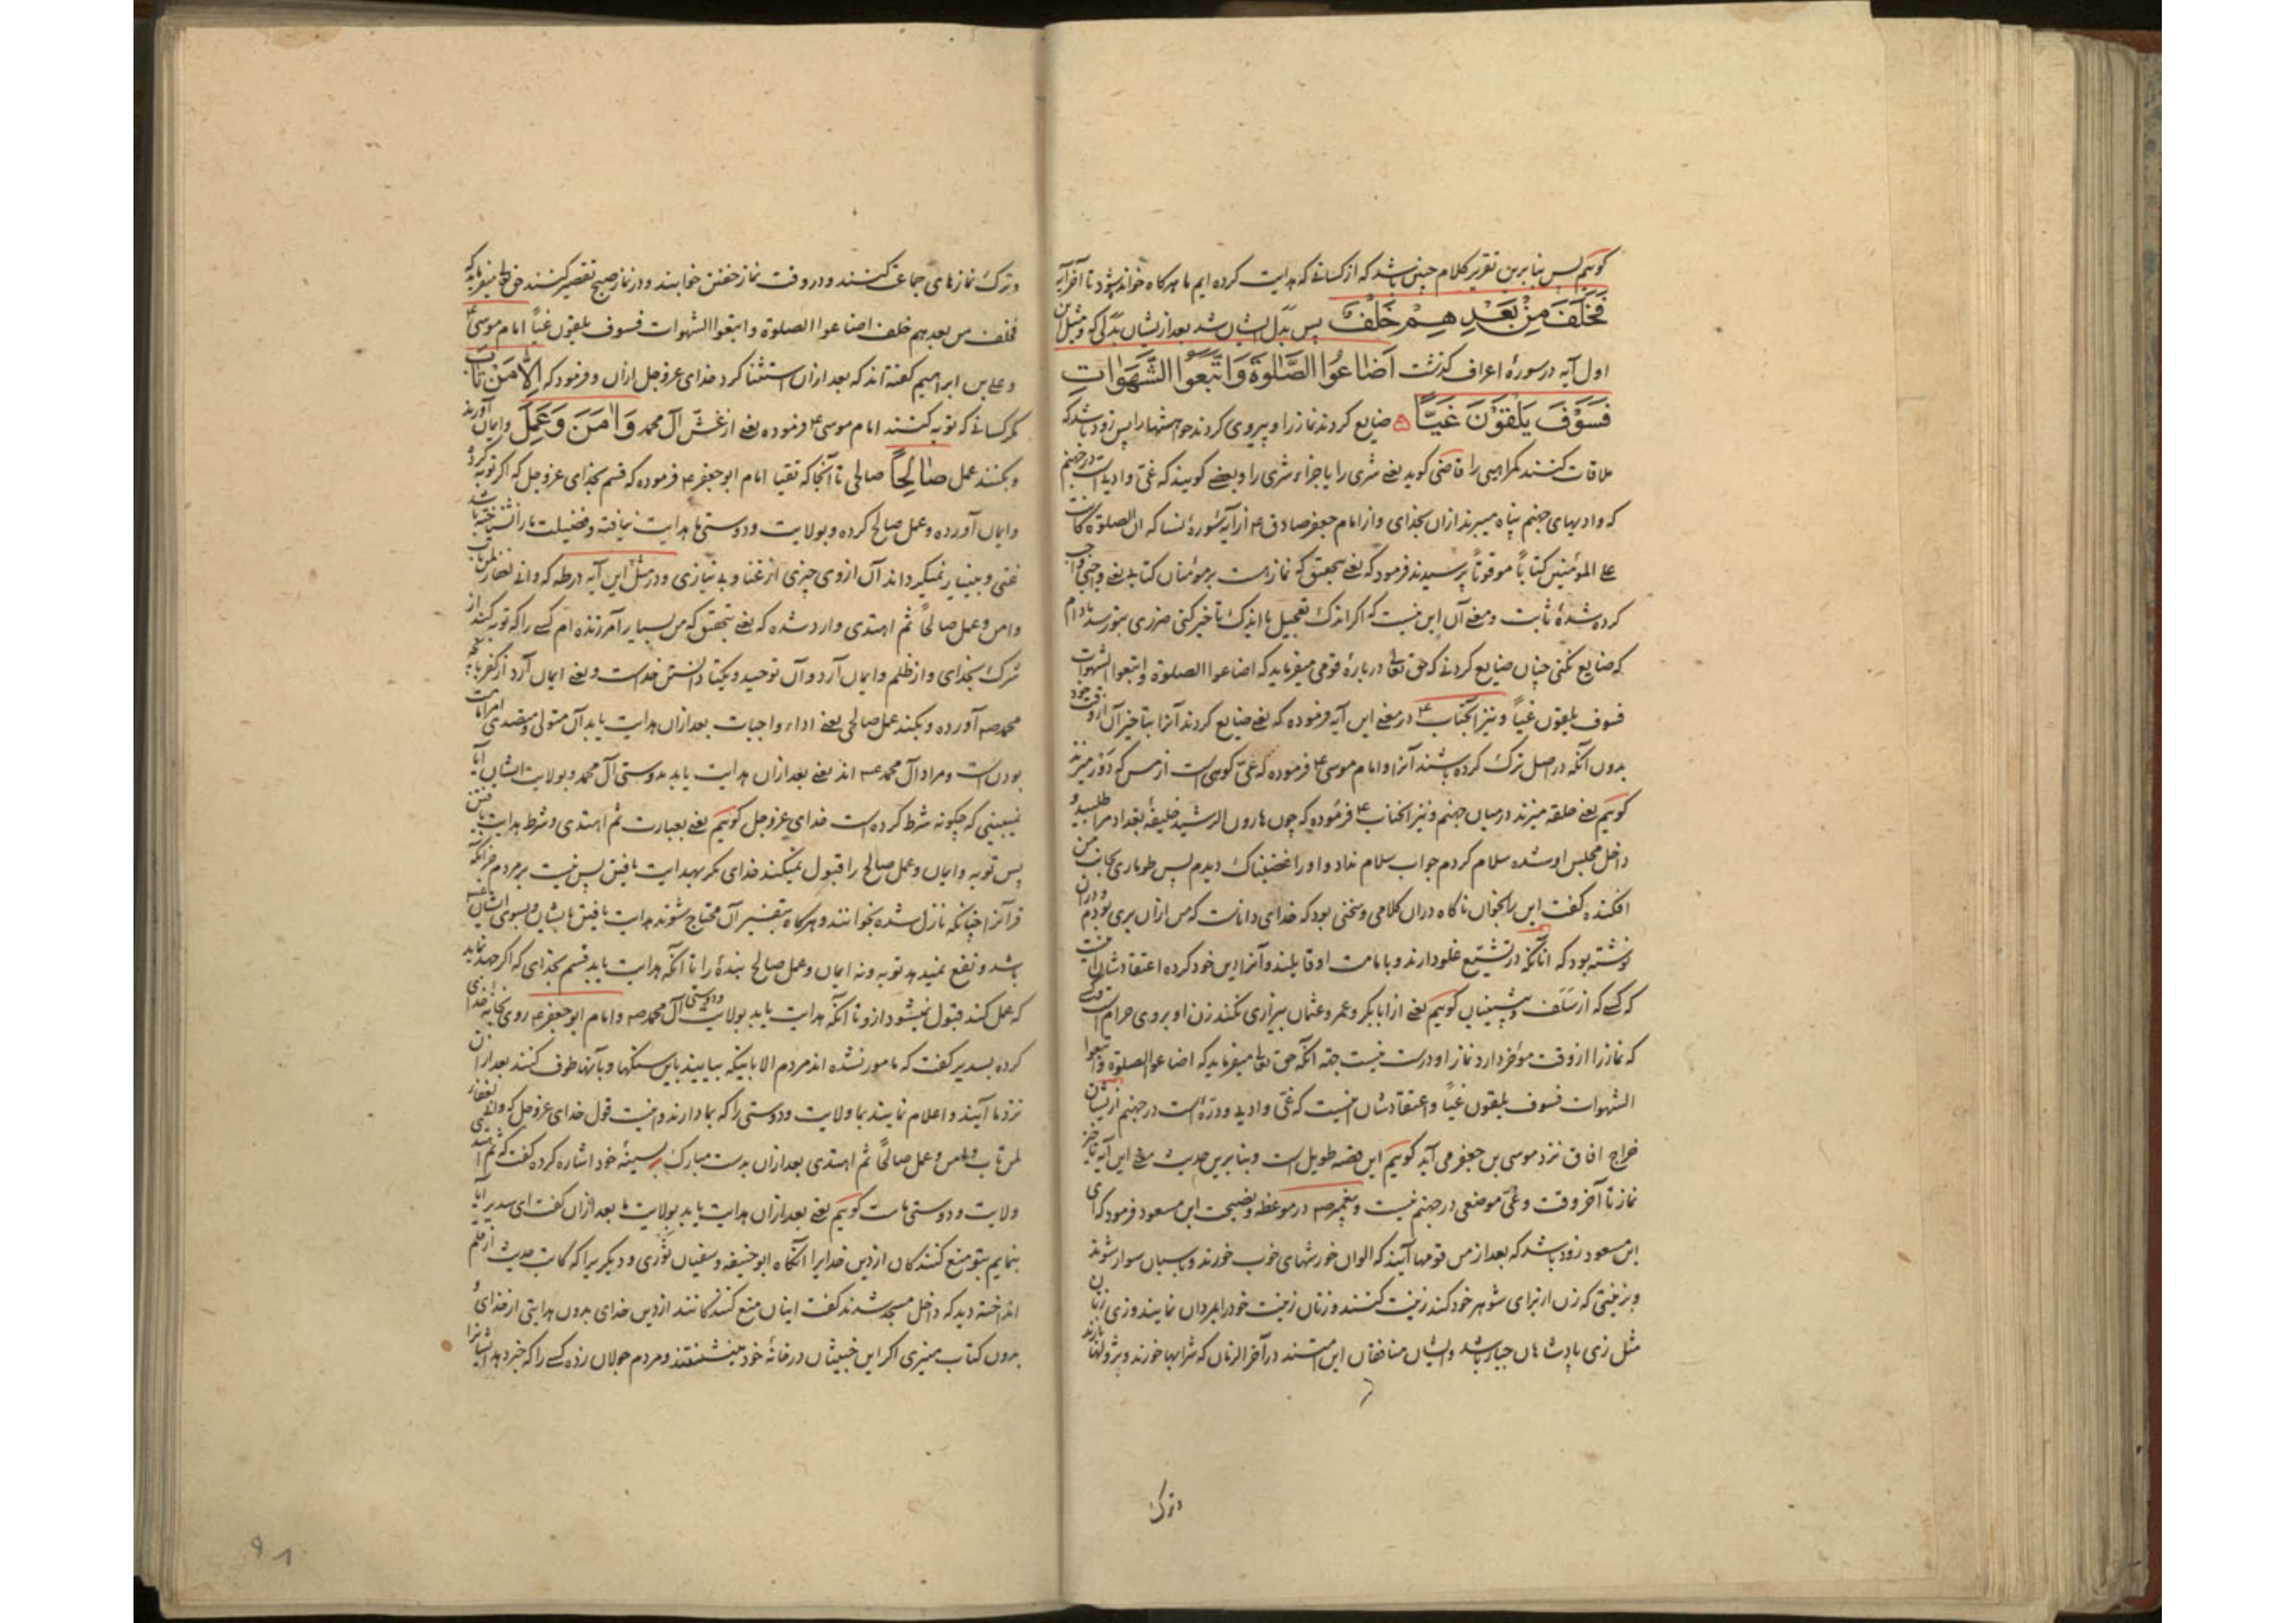 کوئیم پس بنا برین تقریر کلام چنین باشد که از کسانی که هدایت کرده ایم ما هرکاه خوانده شود تا آخر آیه
فَخَلَفَ مِنْ بَعْدِهِمْ خَلْفٌ پس بدل ایشان شد بعد از یشان بدلی که و مثل این
اول آیه در سورهٔ اعراف کذشت اَضٰاعُوا الصَّلٰوةَ وَاتَّبَعُوا الشَّهَوٰاتِ
فَسَوْفَ یَلْقَوْنَ غَیّاً ضایع کردند نماز را و پیروی کردند خواهشها را پس زود باشد که
ملاقات کنند کمراهیی را قاضی کوید یعنی شری را یا جزاء شری را و بعضی کویند که غی وادیست در جهنم
که وادیهای جهنم پناه میبرند ازان بخدای و از امام جعفر صادق ع از آیه سورهٔ نسا که ان الصلوة کانت
علی المؤمنین کتاباً موقوتاً پرسیدند فرمود که یعنی بتحقیق که نماز هست بر مومنان کتابه یعنی واجبی واجب
کرده شدهٔ ثابت و معنی آن این نیست که اکر اندک تعجیل یا اندک تاخیر کنی ضرری بتو رسد مادام
که ضایع نکنی چنان ضایع کردنی که حق تعالی دربارهٔ قومی میفرماید که اضاعوا الصلوة واتبعوا الشهوات
فسوف یلقون غیاً و نیز آنجناب ع در معنی این آیه فرموده که یعنی ضایع کردند آنرا بتاخیر آن از وقت خود
بدون آنکه در اصل ترک کرده باشند آنرا و امام موسی ع فرموده که غی کوهی است از مس که دور میزند
کوئیم یعنی حلقه میزند در میان جهنم و نیز آنجناب ع فرموده که چون هارون الرشید خلیفهٔ بغداد مرا طلبید و
داخل مجلس او شده سلام کردم جواب سلام نداد و او را غضبناک دیدم پس طوماری بجانب من
افکنده کفت این را بخوان ناکاه دران کلامی و سخنی بود که خدای داناست که من ازان بری بودم و دران
نوشته بود که آنانکه در تشیع غلو دارند و بامامت او قایلند و آنرا دین خود کرده اعتقادشان اینست
که کسی که از سلف و پیشینیان کوئیم یعنی از ابابکر و عمر و عثمان بیزاری نکند زن او بر وی حرام است
که نماز را از وقت مؤخر دارد نماز او درست نیست جهة آنکه حق تعالی میفرماید که اضاعوا الصلوة واتبعوا
الشهوات فسوف یلقون غیاً و اعتقادشان اینست که غی وادیه و درهٔ است در جهنم ازیشان
خراج افاق نزد موسی بن جعفر می آید کوئیم این قصه طویل است و بنا برین حدیث معنی این آیه تاخیر
نماز تا آخر وقت و غی موضعی در جهنم نیست و پیغمبر ص در موعظه و نصیحت ابن مسعود فرمود که ای
ابن مسعود زود باشد که بعد از من قومها آیند که الوان خورشهای خوب خورند و بر اسبان سوار شوند
و بزینتی که زن از برای شوهر خود کند زینت کنند و زنان زینت خود را بمردان نمایند و زی زنان
مثل زی پادشاهان جبار باشد و ایشان منافقان این امتند در آخر الزمان که شرابها خورند
وترک
وترک نمازهای جماعت کنند و در وقت نماز خفتن خوابند و در نماز صبح تقصیر کنند حق تعالی میفرماید که
فخلف من بعدهم خلف اضاعوا الصلوة واتبعوا الشهوات فسوف یلقون غیاً امام موسی ع
و علی بن ابراهیم کفته اند که بعد ازان استثنا کرد خدای عزوجل ازان و فرمود که اِلّٰا مَنْ تٰابَ
مکر کسانی که توبه کنند امام موسی ع فرموده یعنی از غش آل محمد وَاٰمَنَ وَعَمِلَ و ایمان آورند
و بکنند عمل صٰالِحاً صالحی تا آنجا که تقیا امام ابو جعفر ع فرموده که قسم بخدای عزوجل که اکر توبه کرد
و ایمان آورده و عمل صالح کرده و بولایت و دوستی ما هدایت نیافته و فضیلت ما را نشناخته باشد
غنی و بینیاز نمیکرداند آن ازوی چیزی از غنا و بی نیازی و در مثل این آیه در طه که وانی لغفار لمن تاب
وامن وعمل صالحاً ثم اهتدی وارد شده که یعنی بتحقیق که من بسیار آمرزنده ام کسی را که توبه کند از
شرک بخدای و از ظلم و ایمان آرد و آن توحید و یکتا دانستن خداست و یعنی ایمان آرد از کفر بآنچه
محمد ص آورده و بکند عمل صالحی یعنی اداء واجبات بعد ازان هدایت یابد آن متولی و مقتدی امامت
بودنست و مراد آل محمد ص اند یعنی بعد ازان هدایت یابد بدوستی آل محمد و بولایت ایشان آیا
نمیبینی که چکونه شرط کرده است خدای عزوجل کوئیم یعنی بعبارت ثم اهتدی و شرط هدایت یافتن
پس توبه و ایمان و عمل صالح را قبول نمیکند خدای مکر بهدایت یافتن پس نیست بر مردم جز آنکه
قرآنرا چنانکه نازل شده بخوانند و هرکاه بتفسیر آن محتاج شوند هدایت یافتن بایشان و بسوی ایشان
باشد و نفع نمیدهد توبه و نه ایمان و عمل صالح بندهٔ را تا آنکه هدایت یابد قسم بخدای که اکر جهد نماید
که عمل کند قبول نمیشود ازو تا آنکه هدایت یابد بولایت و دوستی آل محمد ص و امام ابو جعفر ع روی بخانهٔ خدا
کرده بسدیر کفت که مامور نشده اند مردم الا باینکه بیایند باین سنکها و بآنها طوف کنند بعد ازان
نزد ما آیند و اعلام نمایند بما ولایت و دوستی را که بما دارند و اینست قول خدای عزوجل که وانی لغفار
لمن تاب وامن وعمل صالحاً ثم اهتدی بعد ازان بدست مبارک بسینهٔ خود اشاره کرده کفت که ثم اهتدی
ولایت و دوستی ماست کوئیم یعنی بعد ازان هدایت یابد بولایت ما بعد ازان کفت ای سدیر آیا
بنمایم بتو منع کنندکان از دین خدایرا آنکاه ابو حنیفه و سفیان ثوری و دیکر یرا که کاتب حدیث از قلم
انداخته دید که داخل مسجد شدند کفت اینان منع کنندکانند از دین خدای بدون هدایتی از خدای و
بدون کتاب مبینی اکر این خبیثان در خانهٔ خود مینشستند و مردم جولان زده کسی را که خبر دهد ایشانرا